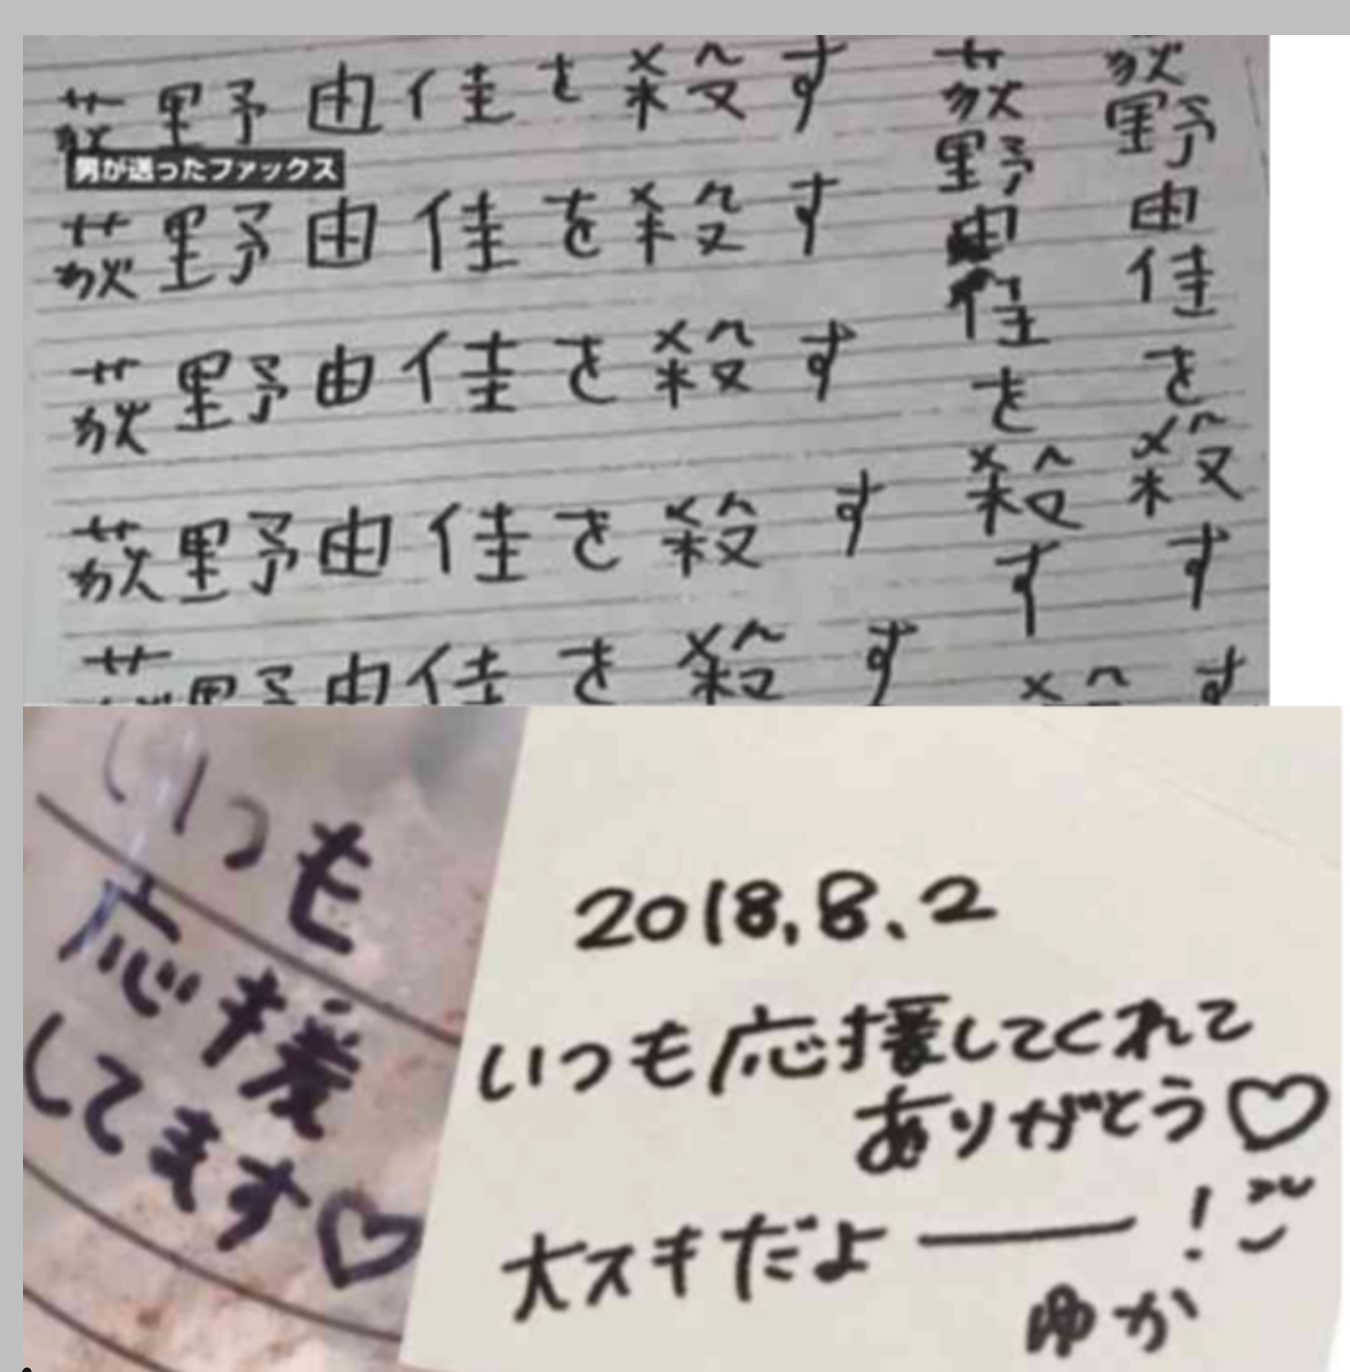 荻野由佳を殺す
男が送ったファックス
荻野由佳を殺す
荻野由佳を殺す
荻野由佳を殺す
荻野由佳を殺す
荻野由佳を殺す
荻野由佳を殺す
す
いつも
応援
してます♡
2018.8.2
いつも応援してくれて
ありがとう♡
大スキだよ――!
ゆか